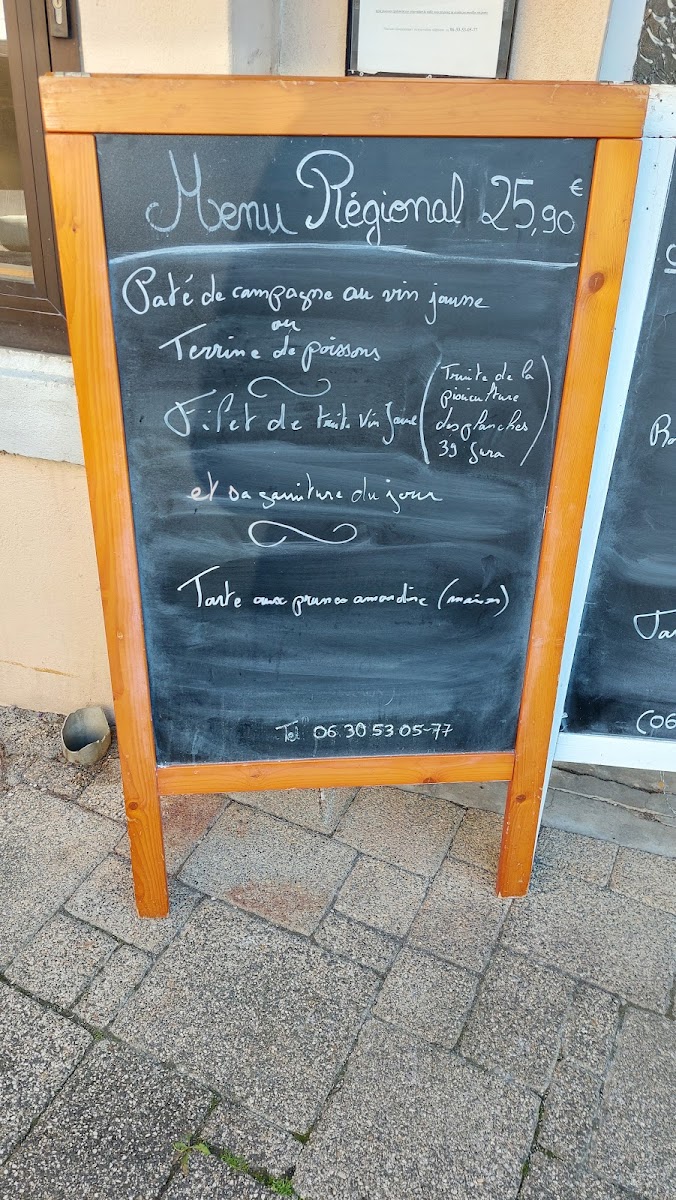 06 30 53 05 77
Menu Régional 25,90 €
Paté de campagne au vin jaune
ou
Terrine de poissons
Filet de truite Vin Jaune (Truite de la
pisciculture
des planches
39 Jura)
et sa garniture du jour
Tarte aux prunes amandine (maison)
Tel 06 30 53 05-77
(06